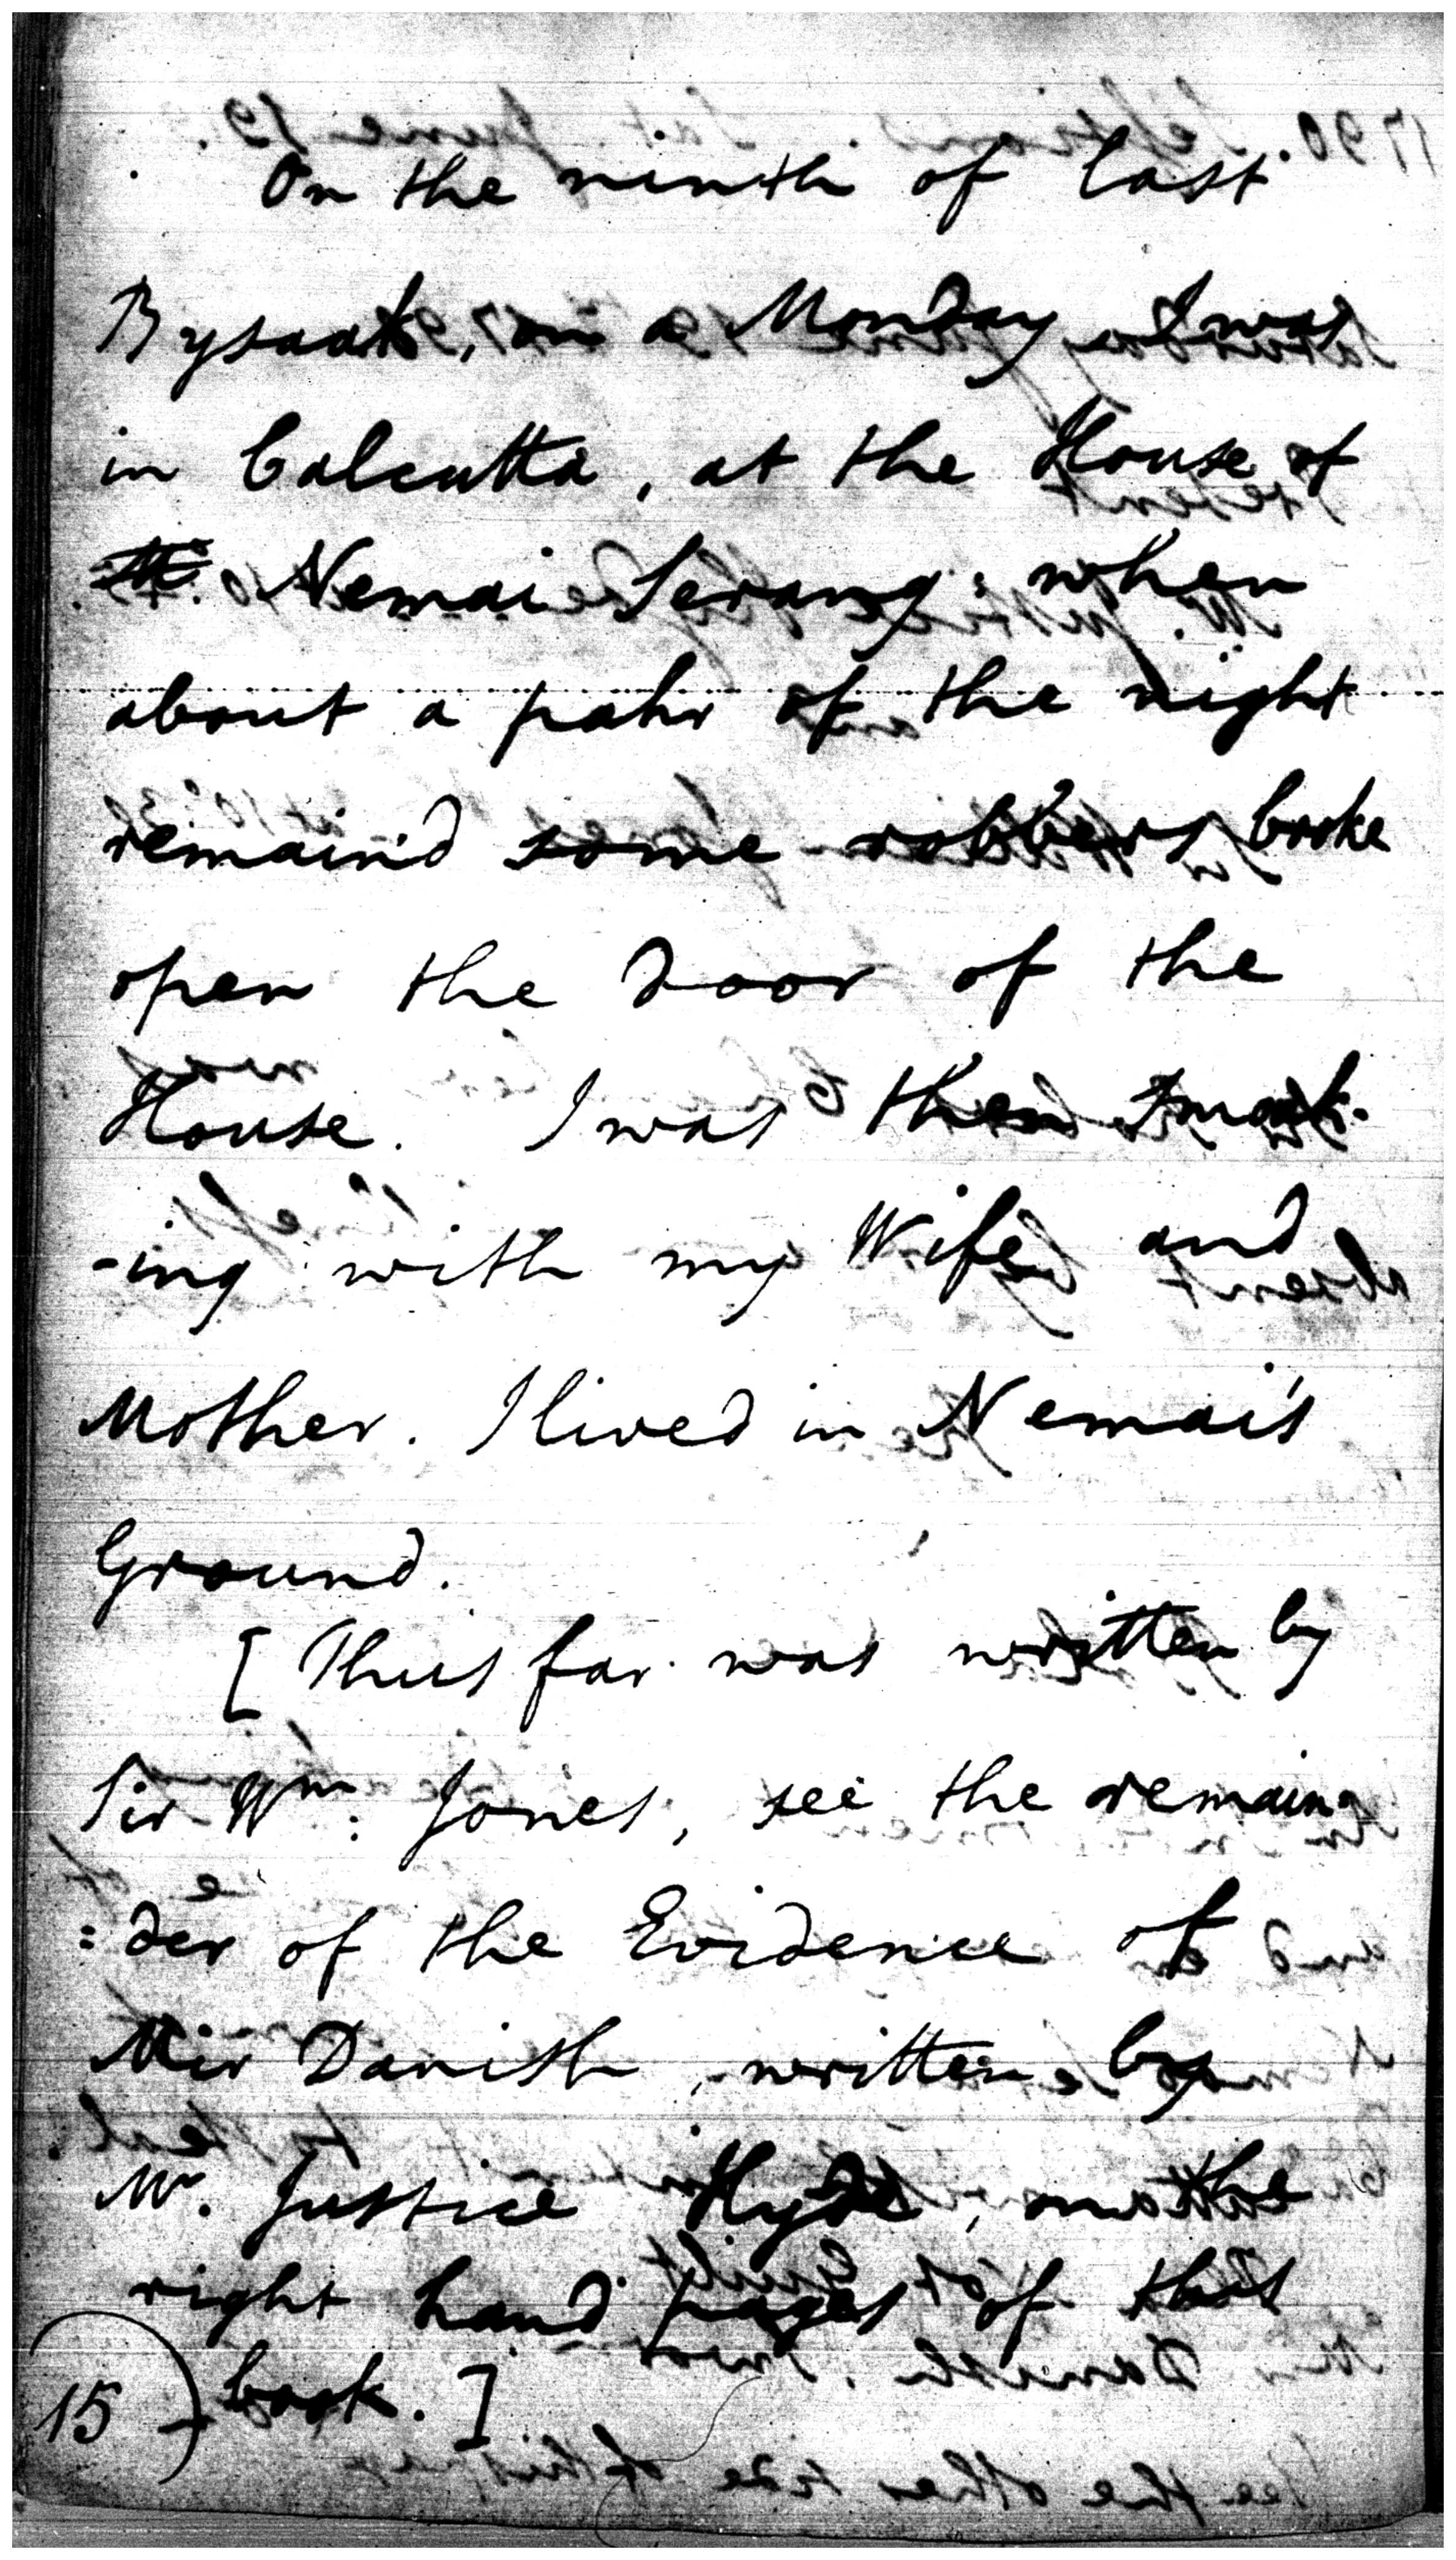 On the ninth of last
Bysaak, on a Monday I was
in Calcutta, at the House of
Nemai Serang; when
about a pahr of the night
remain'd some robbers broke
open the door of the
House. I was then smoak-
-ing with my Wife and
Mother. I lived in Nemai's
Ground.
[Thus far was written by
Sir Wm: Jones, see the remain=
=der of the Evidence of
Mir Danish, written by
Mr. Justice Hyde, on the
right hand pages of this
15) book.]